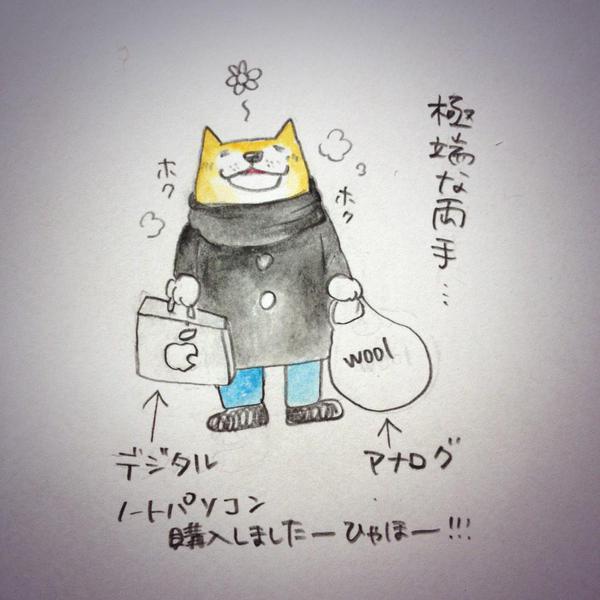 極端な両手…
ホク
ホク
wool
デジタル
アナログ
ノートパソコン
購入しましたーひゃほー!!!